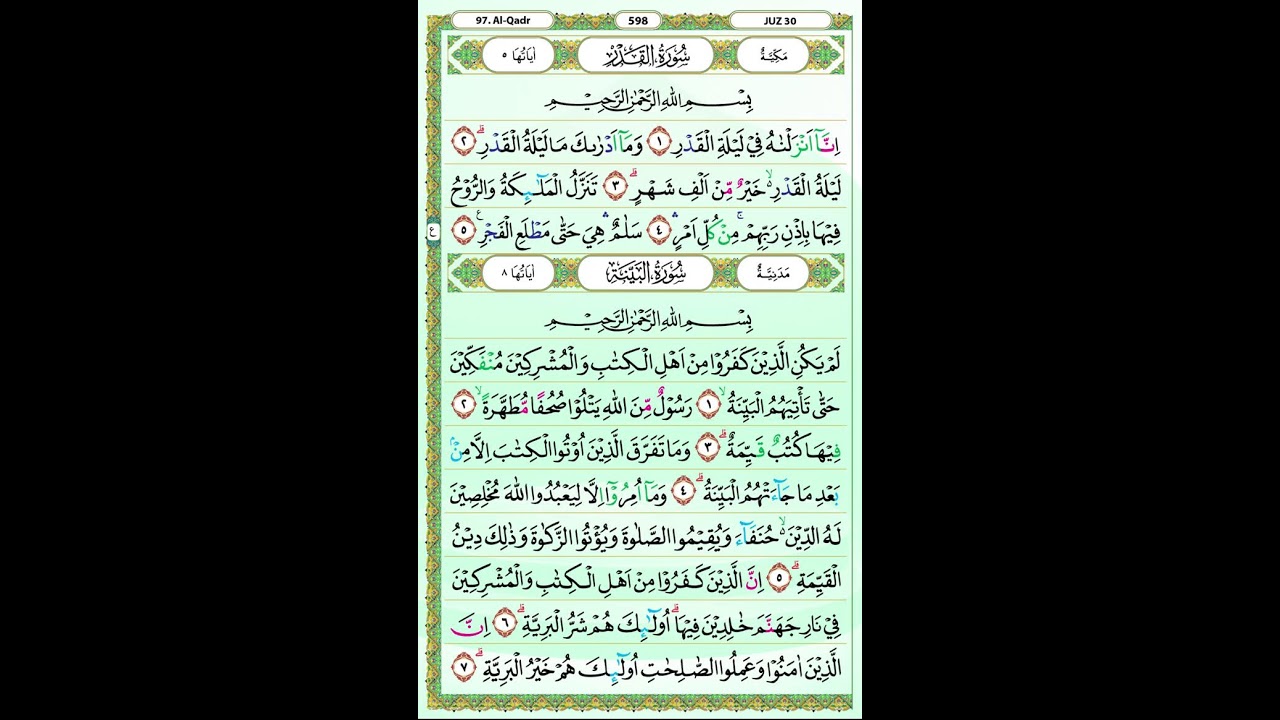 97. Al-Qadr 598 JUZ 30
مَكِّيَّةٌ سُوْرَةُ الْقَدْرِ اٰيَاتُهَا ٥
بِسْـــمِ اللّٰهِ الرَّحْمٰنِ الرَّحِيْـــمِ
اِنَّآ اَنْزَلْنٰهُ فِيْ لَيْلَةِ الْقَدْرِ ١ وَمَآ اَدْرٰىكَ مَا لَيْلَةُ الْقَدْرِۗ ٢
لَيْلَةُ الْقَدْرِ ەۙ خَيْرٌ مِّنْ اَلْفِ شَهْرٍۗ ٣ تَنَزَّلُ الْمَلٰۤىِٕكَةُ وَالرُّوْحُ
فِيْهَا بِاِذْنِ رَبِّهِمْۚ مِنْ كُلِّ اَمْرٍۛ ٤ سَلٰمٌۛ هِيَ حَتّٰى مَطْلَعِ الْفَجْرِ ࣖ ٥
ع
مَدَنِيَّةٌ سُوْرَةُ الْبَيِّنَةِ اٰيَاتُهَا ٨
بِسْـــمِ اللّٰهِ الرَّحْمٰنِ الرَّحِيْـــمِ
لَمْ يَكُنِ الَّذِيْنَ كَفَرُوْا مِنْ اَهْلِ الْكِتٰبِ وَالْمُشْرِكِيْنَ مُنْفَكِّيْنَ
حَتّٰى تَأْتِيَهُمُ الْبَيِّنَةُۙ ١ رَسُوْلٌ مِّنَ اللّٰهِ يَتْلُوْا صُحُفًا مُّطَهَّرَةًۙ ٢
فِيْهَا كُتُبٌ قَيِّمَةٌۗ ٣ وَمَا تَفَرَّقَ الَّذِيْنَ اُوْتُوا الْكِتٰبَ اِلَّا مِنْۢ
بَعْدِ مَا جَاۤءَتْهُمُ الْبَيِّنَةُۗ ٤ وَمَآ اُمِرُوْٓا اِلَّا لِيَعْبُدُوا اللّٰهَ مُخْلِصِيْنَ
لَهُ الدِّيْنَ ەۙ حُنَفَاۤءَ وَيُقِيْمُوا الصَّلٰوةَ وَيُؤْتُوا الزَّكٰوةَ وَذٰلِكَ دِيْنُ
الْقَيِّمَةِۗ ٥ اِنَّ الَّذِيْنَ كَفَرُوْا مِنْ اَهْلِ الْكِتٰبِ وَالْمُشْرِكِيْنَ
فِيْ نَارِ جَهَنَّمَ خٰلِدِيْنَ فِيْهَاۗ اُولٰۤىِٕكَ هُمْ شَرُّ الْبَرِيَّةِۗ ٦ اِنَّ
الَّذِيْنَ اٰمَنُوْا وَعَمِلُوا الصّٰلِحٰتِ اُولٰۤىِٕكَ هُمْ خَيْرُ الْبَرِيَّةِۗ ٧